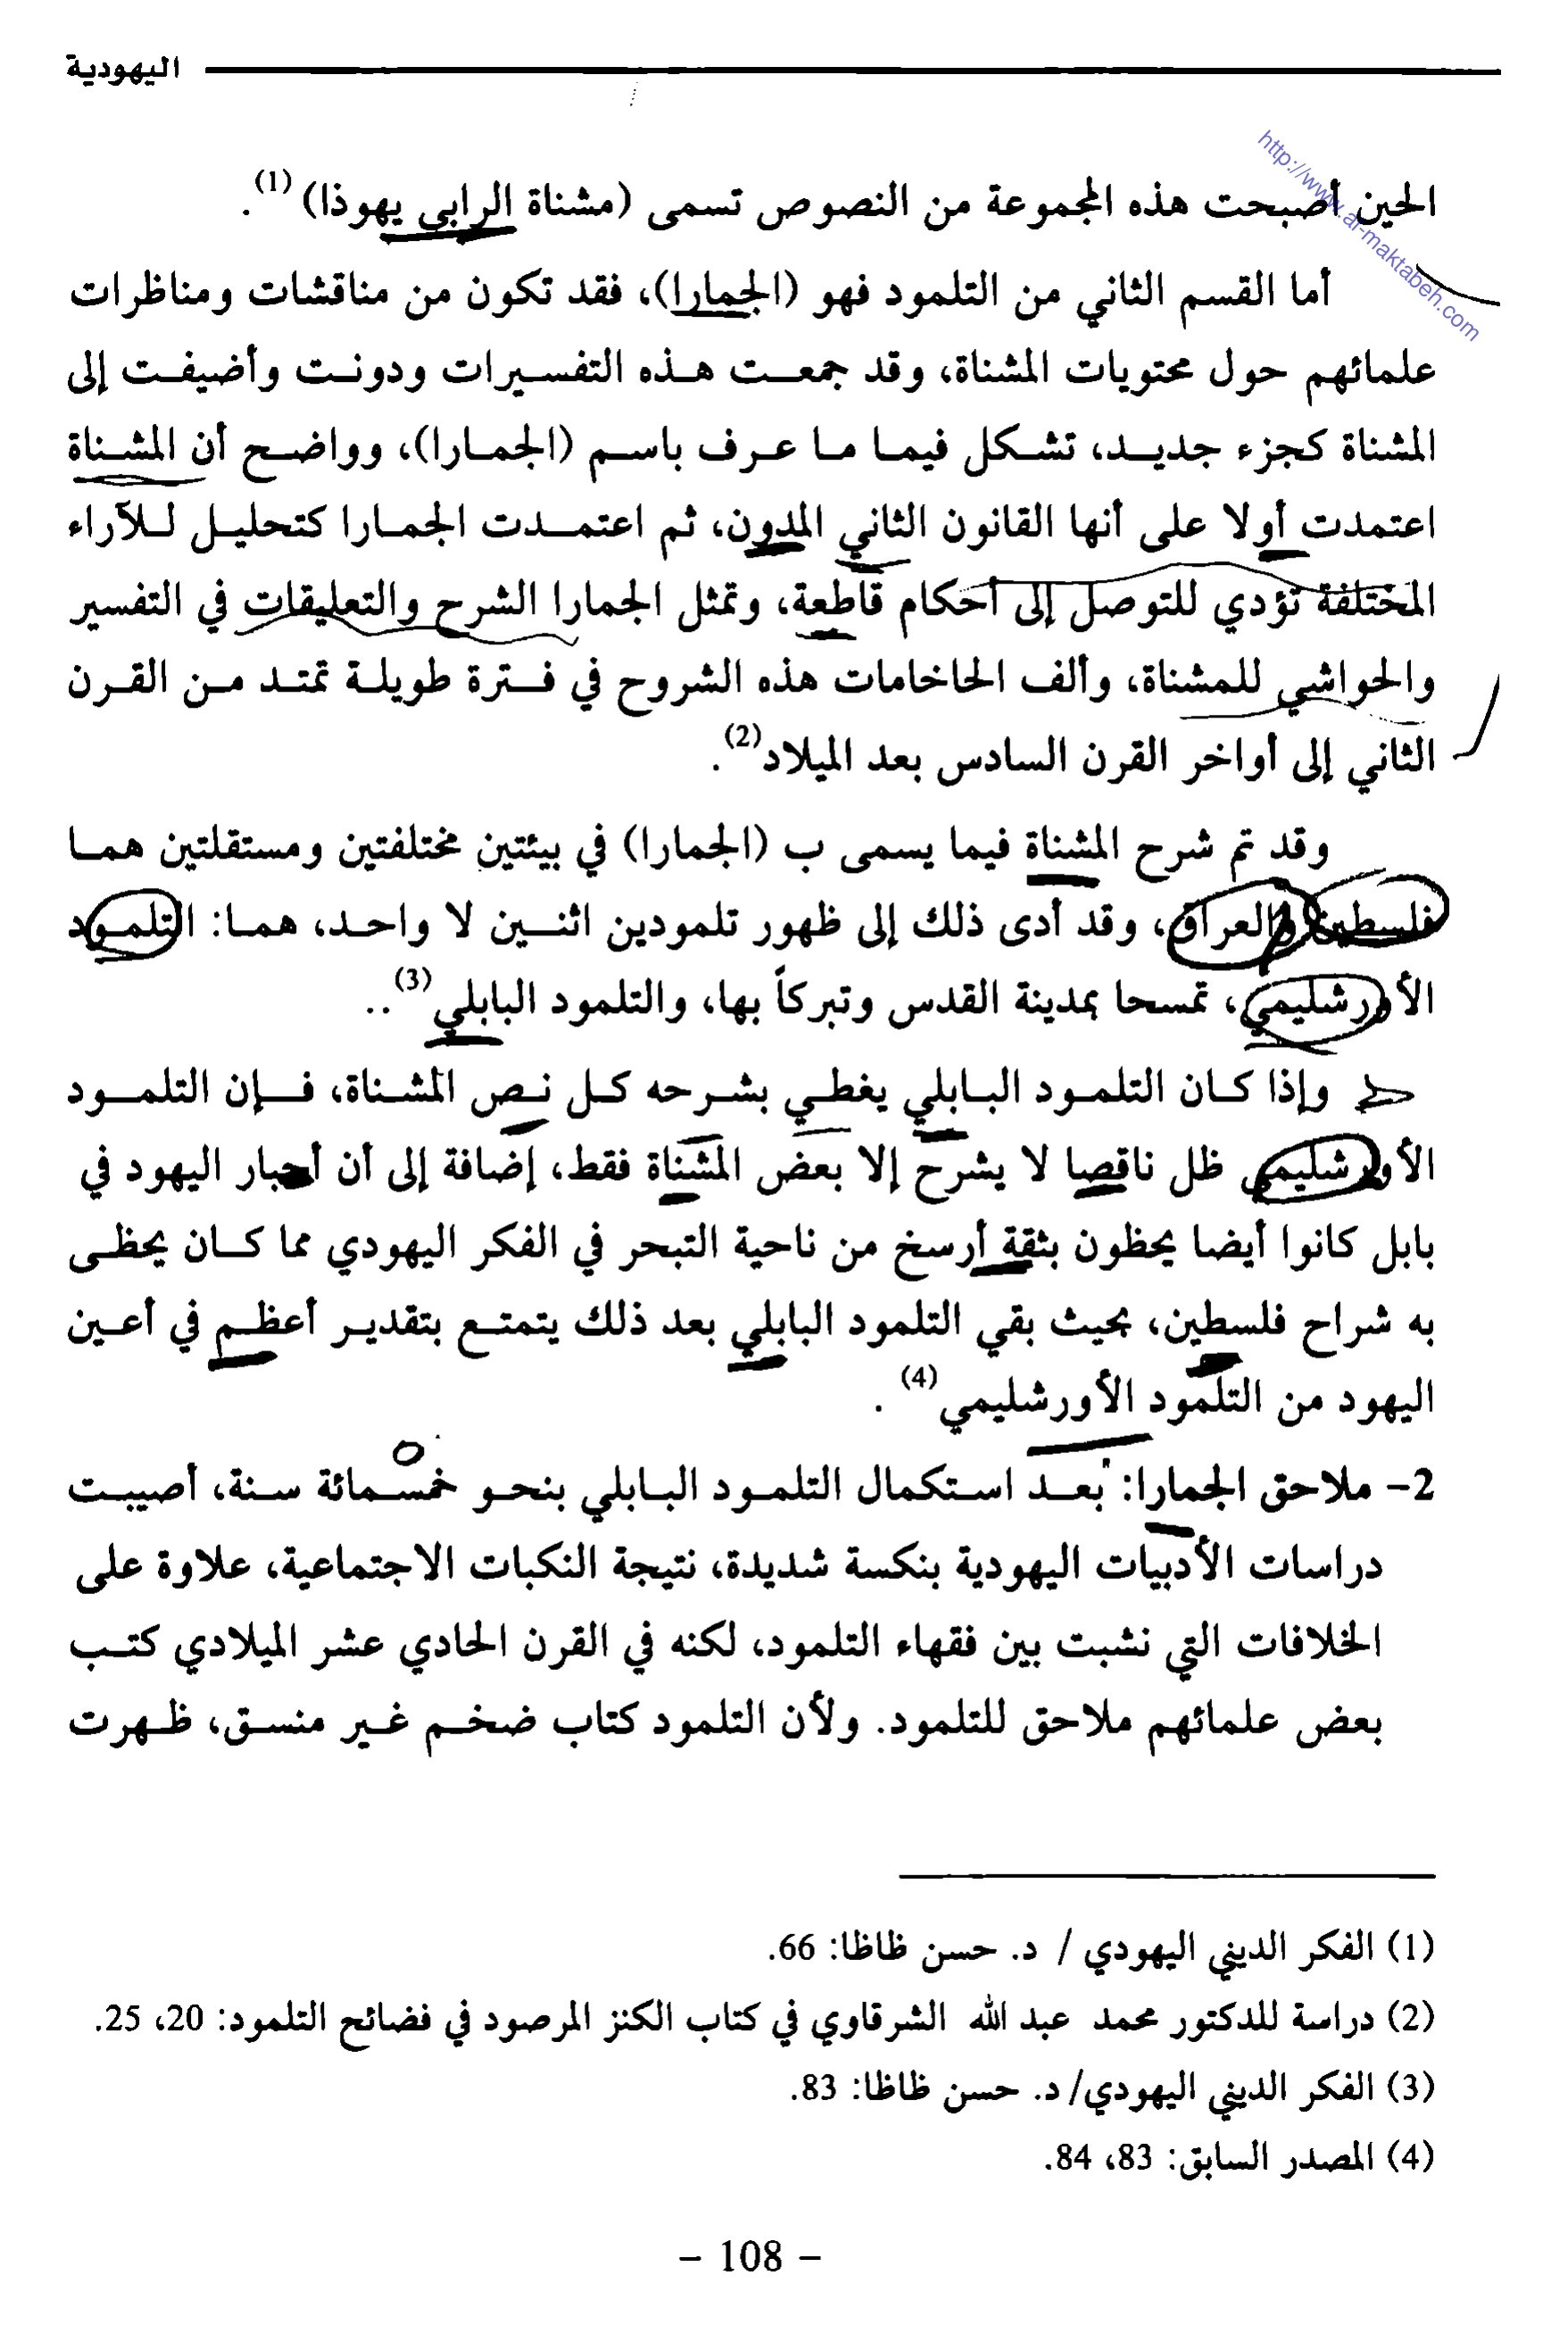 اليهودية
http://www.al-maktabeh.com
الحين أصبحت هذه المجموعة من النصوص تسمى (مشناة الرابي يهوذا) (1).
أما القسم الثاني من التلمود فهو (الجمارا)، فقد تكون من مناقشات ومناظرات
علمائهم حول محتويات المشناة، وقد جمعت هذه التفسيرات ودونت وأضيفت إلى
المشناة كجزء جديد، تشكل فيما ما عرف باسم (الجمارا)، وواضح أن المشناة
اعتمدت أولا على أنها القانون الثاني المدون، ثم اعتمدت الجمارا كتحليل للآراء
المختلفة تؤدي للتوصل إلى أحكام قاطعة، وتمثل الجمارا الشرح والتعليقات في التفسير
والحواشي للمشناة، وألف الحاخامات هذه الشروح في فترة طويلة تمتد من القرن
الثاني إلى أواخر القرن السادس بعد الميلاد(2).
وقد تم شرح المشناة فيما يسمى ب (الجمارا) في بيئتين مختلفتين ومستقلتين هما
فلسطين والعراق، وقد أدى ذلك إلى ظهور تلمودين اثنين لا واحد، هما: التلمود
الأورشليمي، تمسحا بمدينة القدس وتبركاً بها، والتلمود البابلي(3)..
وإذا كان التلمود البابلي يغطي بشرحه كل نص المشناة، فإن التلمود
الأورشليمي ظل ناقصا لا يشرح إلا بعض المشناة فقط، إضافة إلى أن أحبار اليهود في
بابل كانوا أيضا يحظون بثقة أرسخ من ناحية التبحر في الفكر اليهودي مما كان يحظى
به شراح فلسطين، بحيث بقي التلمود البابلي بعد ذلك يتمتع بتقدير أعظم في أعين
اليهود من التلمود الأورشليمي(4) .
2- ملاحق الجمارا: بعد استكمال التلمود البابلي بنحو خمسمائة سنة، أصيبت
دراسات الأدبيات اليهودية بنكسة شديدة، نتيجة النكبات الاجتماعية، علاوة على
الخلافات التي نشبت بين فقهاء التلمود، لكنه في القرن الحادي عشر الميلادي كتب
بعض علمائهم ملاحق للتلمود. ولأن التلمود كتاب ضخم غير منسق، ظهرت
(1) الفكر الديني اليهودي / د. حسن ظاظا: 66.
(2) دراسة للدكتور محمد عبد الله الشرقاوي في كتاب الكنز المرصود في فضائح التلمود: 20، 25.
(3) الفكر الديني اليهودي/ د. حسن ظاظا: 83.
(4) المصدر السابق: 83، 84.
- 108 -